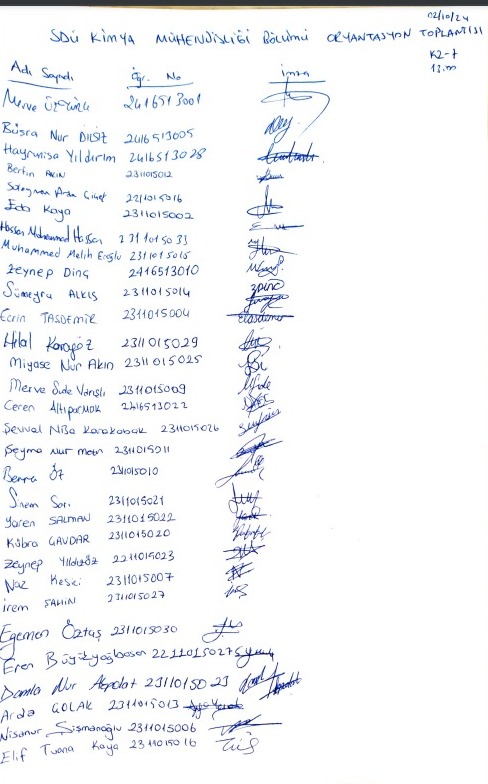 02/10/24
SDÜ KİMYA MÜHENDİSLİĞİ BÖLÜMÜ ORYANTASYON TOPLANTISI
K2-7
13.00
Adı Soyadı Öğr. No İmza
Merve 2416513001
Büşra Nur DİLSİZ 2416513005
Hayrunisa Yıldırım 2416513028
Berfin AKIN 2311015012
Süleyman Arda 2211015016
Eda Kaya 2311015002
Hassan Mohammed Hassan 2311015033
Muhammed Melih Eroğlu 2311015015
Zeynep Dinç 2416513010
Sümeyra ALKIŞ 2311015014
Ecrin TAŞDEMİR 2311015004
Hilal Karagöz 2311015029
Miyase Nur Akın 2311015025
Merve Sude Varışlı 2311015009
Ceren Altıparmak 2416513022
Şevval Nisa Karakabak 2311015026
Şeyma Nur 2311015011
Berra Öz 2311015010
Sinem Sarı 2311015021
Yaren SALMAN 2311015022
Kübra GAVDAR 2311015020
Zeynep Yıldızöz 2211015023
Naz Kesici 2311015007
İrem ŞAHİN 2311015027
Egemen Öztaş 2311015030
Eren 2211015027
Damla Nur Akpolat 2311015023
Arda ÇOLAK 2311015013
Nisanur Şişmanoğlu 2311015006
Elif Tuana Kaya 2311015016